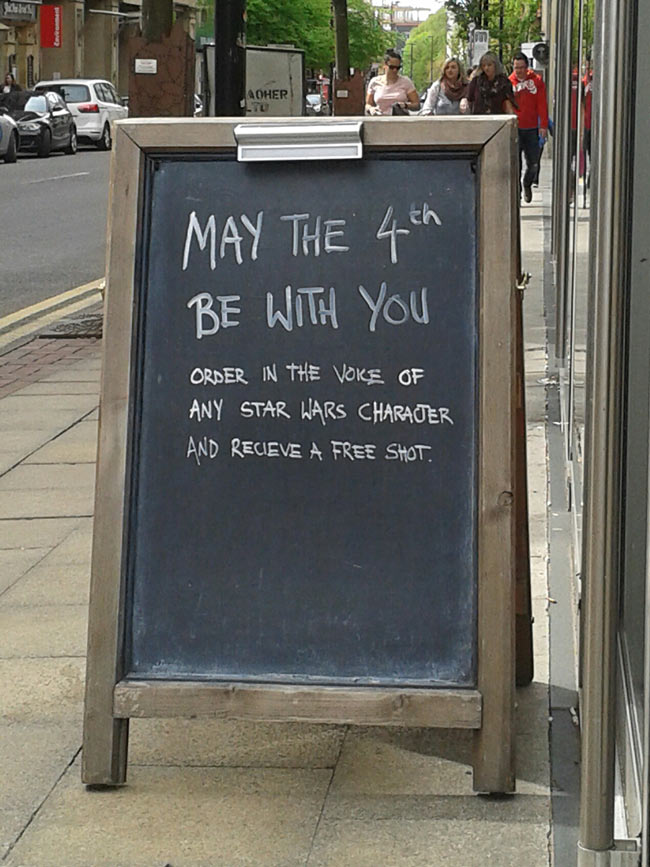 MAY THE 4th
BE WITH YOU
ORDER IN THE VOICE OF
ANY STAR WARS CHARACTER
AND RECIEVE A FREE SHOT.